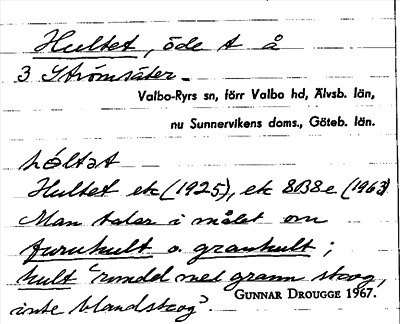 Hultet, öde t å
3 Strömsäter
Valbo-Ryrs sn, förr Valbo hd, Älvsb. län,
nu Sunnervikens doms., Göteb. län.
hóltət
Hultet ek (1925), ek 8038e (1963)
Man talar i målet om
furuhult o. granhult;
hult "rundel med grann skog,
inte blandskog".
GUNNAR DROUGGE 1967.